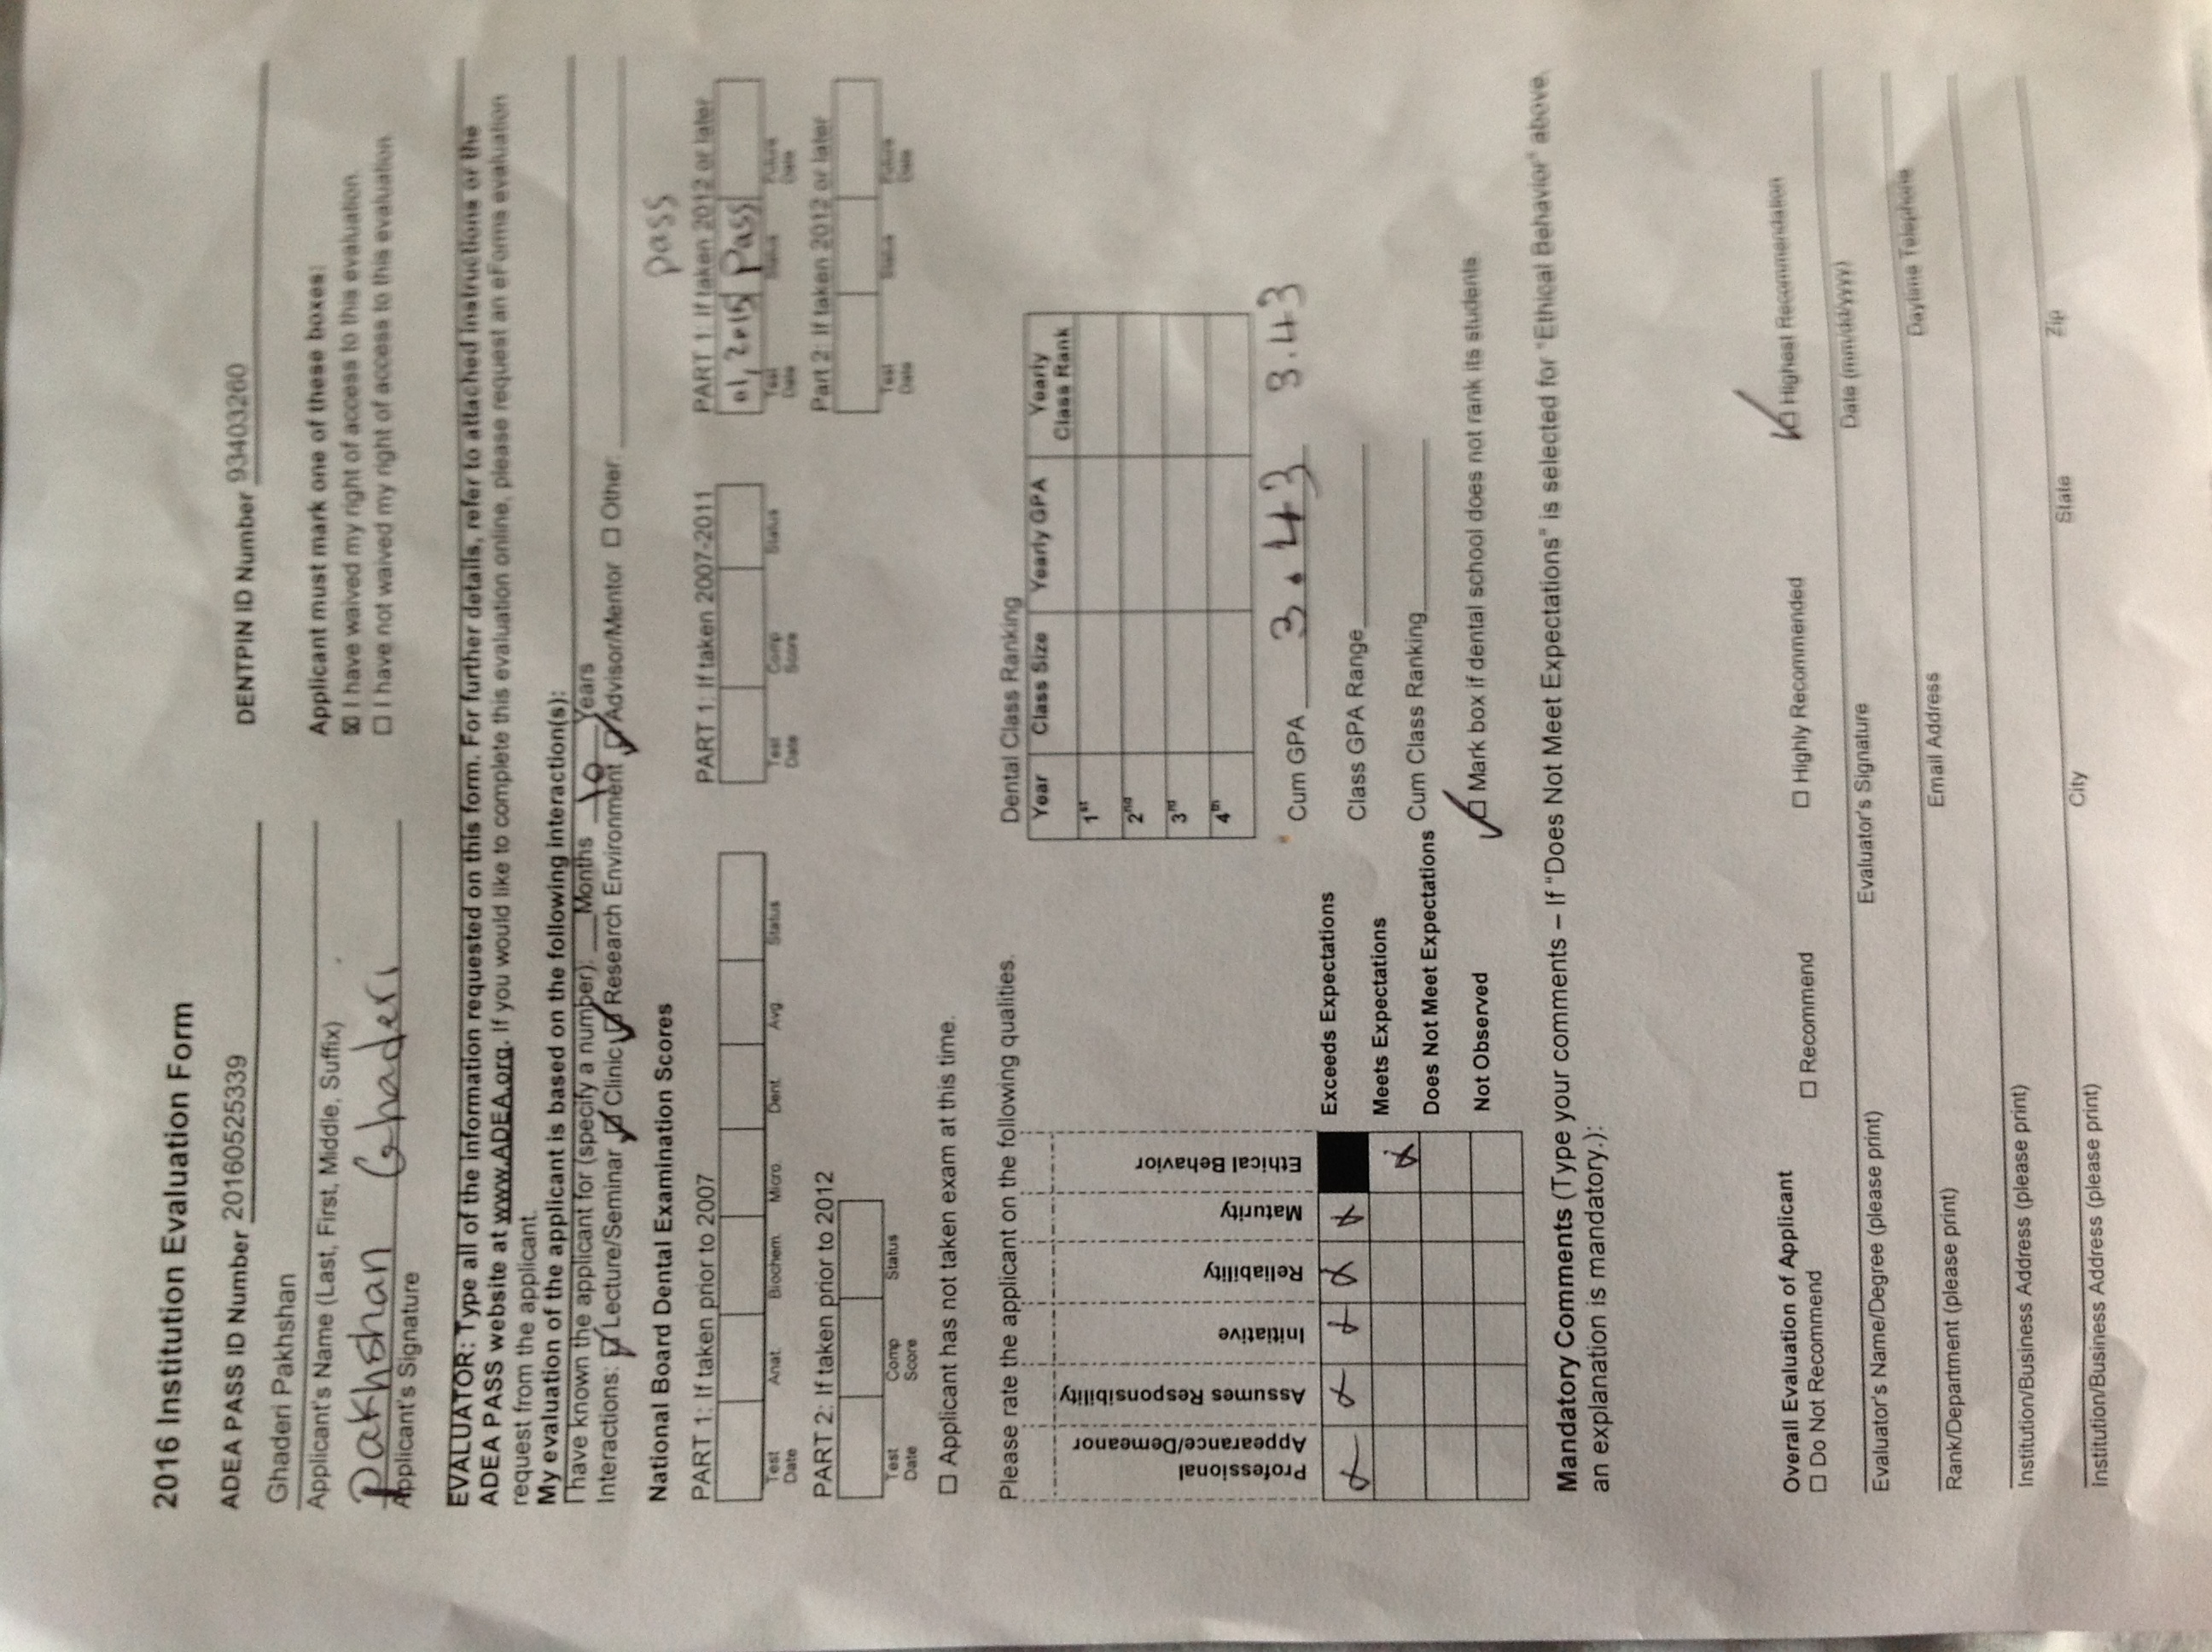 2016 Institution Evaluation Form
ADEA PASS ID Number 20160525339 DENTPIN ID Number 93403260
Ghaderi Pakhshan
Applicant's Name (Last, First, Middle, Suffix)
Pakhshan Ghaderi
Applicant's Signature
Applicant must mark one of these boxes:
☒ I have waived my right of access to this evaluation.
☐ I have not waived my right of access to this evaluation
EVALUATOR: Type all of the information requested on this form. For further details, refer to attached instructions or the
ADEA PASS website at www.ADEA.org. If you would like to complete this evaluation online, please request an eForms evaluation
request from the applicant.
My evaluation of the applicant is based on the following interaction(s):
I have known the applicant for (specify a number). ___Months 10 Years
Interactions: ☑ Lecture/Seminar ☑ Clinic ☑ Research Environment ☑ Advisor/Mentor ☐ Other:
National Board Dental Examination Scores
pass
PART 1: If taken prior to 2007 PART 1: If taken 2007-2011 PART 1: If taken 2012 or later
01, 2015 Pass
Test Date Anat. Biochem. Micro. Dent. Avg Status Test Date Comp Score Status Test Date Status Future Date
PART 2: If taken prior to 2012 Part 2: If taken 2012 or later
Test Date Comp Score Status Test Date Status Future Date
☐ Applicant has not taken exam at this time.
Please rate the applicant on the following qualities.
Professional Appearance/Demeanor
Assumes Responsibility
Initiative
Reliability
Maturity
Ethical Behavior
Exceeds Expectations
Meets Expectations
Does Not Meet Expectations
Not Observed
Dental Class Ranking
Year Class Size Yearly GPA Yearly Class Rank
1st
2nd
3rd
4th
Cum GPA 3.43 3.43
Class GPA Range
Cum Class Ranking
☑ Mark box if dental school does not rank its students
Mandatory Comments (Type your comments – If "Does Not Meet Expectations" is selected for "Ethical Behavior" above,
an explanation is mandatory.):
Overall Evaluation of Applicant
☐ Do Not Recommend ☐ Recommend ☐ Highly Recommended ☑ Highest Recommendation
Evaluator's Name/Degree (please print) Evaluator's Signature Date (mm/dd/yyyy)
Rank/Department (please print) Email Address Daytime Telephone
Institution/Business Address (please print)
Institution/Business Address (please print) City State Zip